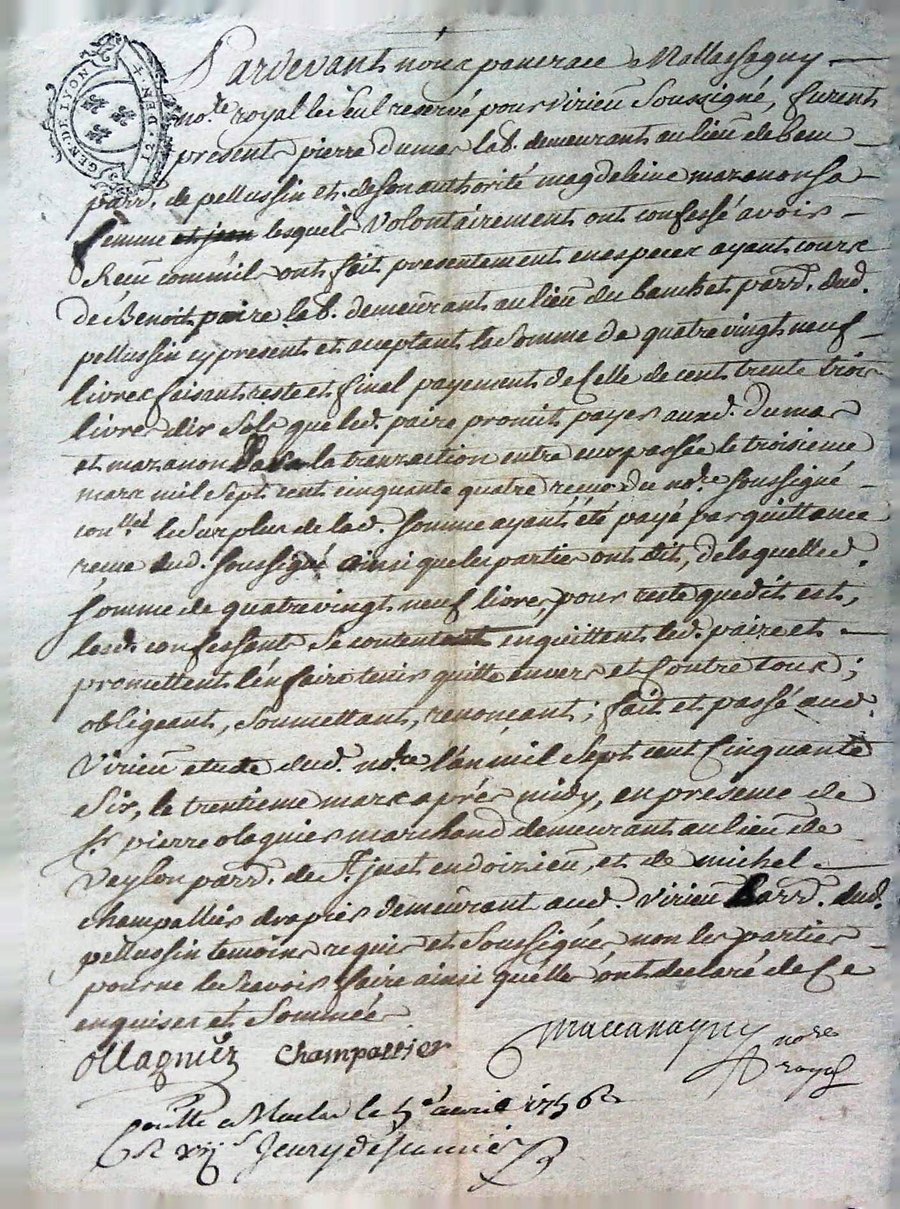 GEN. DE LYON
Pardevant nous pancrace Mallassagny
no.re royal le seul reservé pour virieu soussigné, furent
present pierre dumas lab. demeurant au lieu de
parr. de pellussin et de son authorité magdelaine mazenon sa
femme et jean lesquels volontairement ont confessé avoir
Receu comm'il ont fait presentement en especes ayant cours
de Benoit paire lab. demeurant au lieu du banchet parr. dud.
pellussin cy present et aceptant la somme de quatre vingt neuf
livres faisant reste et final payement de celle de cent trente trois
livres dix sols que led. paire promit payer auxd. dumas
et mazanon la transaction entre eux passée le troisieme
mars mil sept cent cinquante quatre remo du no.re soussigné
con.llé le surplus de lad. somme ayant été payé par quittance
reme dud. soussigné ainsi que les partie ont dit, de laquelle d.
somme de quatre vingt neuf livre, pour reste que dit est,
lesd. confessant se contentent enquittent led. paire et
promettent l'en faire tenir quitte envers et contre tous ;
obligeant, soumettant, renonçant ; fait et passé aud.
Virieu etude dud. no.re l'an mil sept cent cinquante
six, le trentieme mars aprés midy, en presence de
s.r pierre olagnier marchand demeurant au lieu de
Veylon parr. de s.t just en doizieu, et de michel
champallier drapier demeurant aud. virieu parr. dud.
pellussin temoins requis et soussignés non les parties
pour ne le scavoir faire ainsi quelle ont declaré de ce
enquises et sommées
Ollagnier champallier
Mallassagny no.re
royal
a Maclas le 5e avril 1756